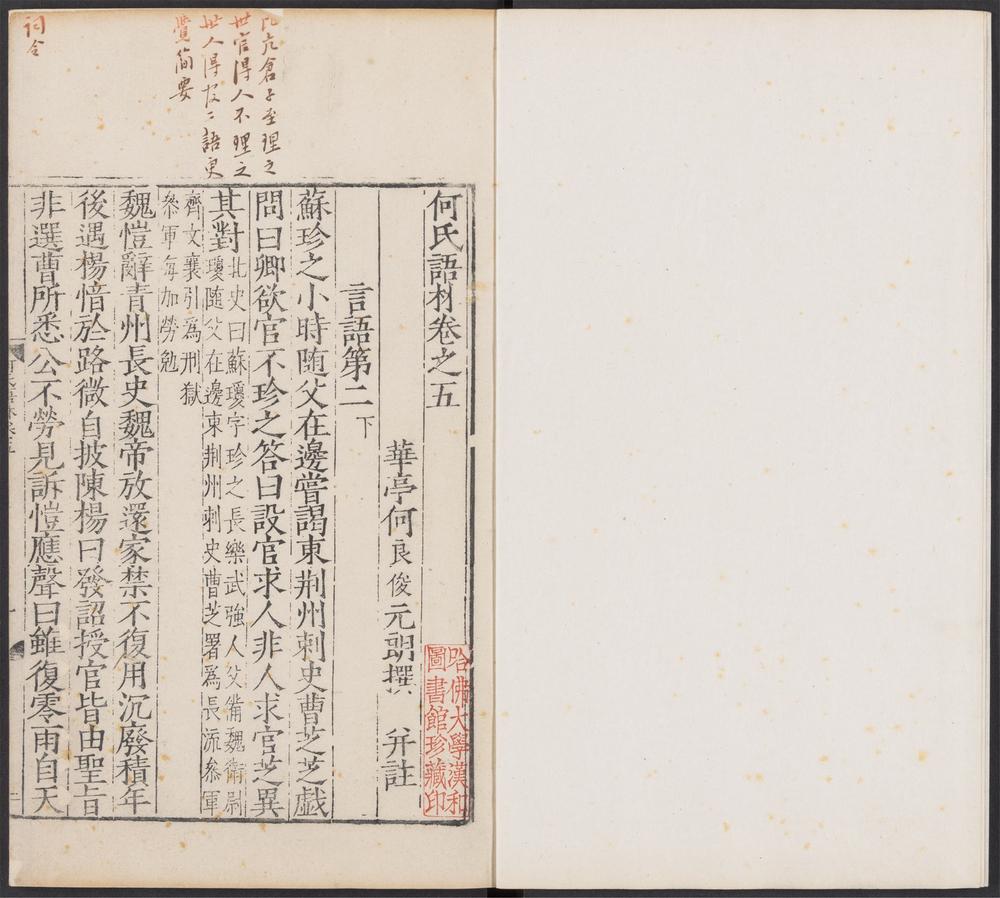 何氏語林卷之五
華亭何良俊元朗撰 并註
言語第二下
蘇珍之小時隨父在邊嘗謁東荆州刺史曹芝芝戯
問曰卿欲官不珍之答曰設官求人非人求官芝異
其對北史曰蘇瓊字珍之長樂武強人父備魏衛尉
瓊隨父在邊東荆州刺史曹芝署爲長流叅軍
齊文襄引爲刑獄
叅軍每加勞勉
魏愷辭青州長史魏帝放還家禁不復用沉廢積年
後遇楊愔於路微自披陳楊曰發詔授官皆由聖旨
非選曹所悉公不勞見訴愷應聲曰雖復零雨自天
亢倉子至理之
世官得人不理之
世人得官二語更
覺簡要
詞令
哈佛大學漢和
圖書館珍藏印